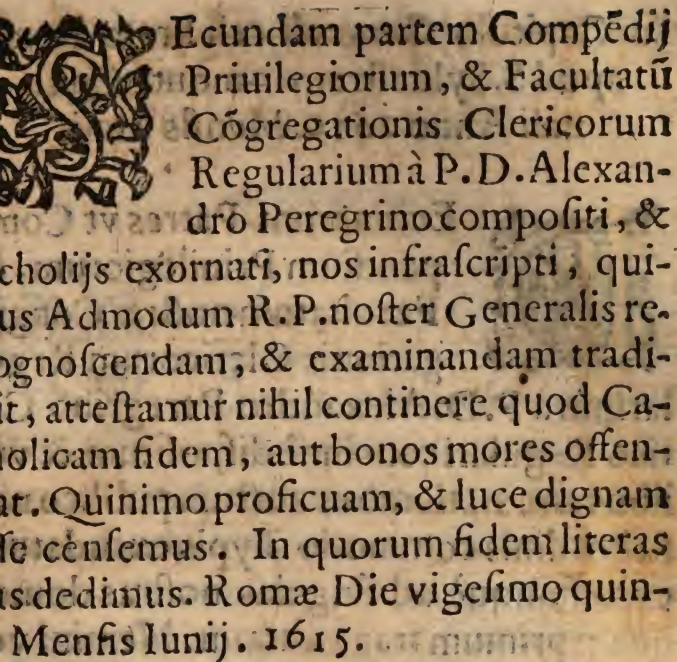 SEcundam partem Compẽdij
Priuilegiorum, & Facultatũ
Cõgregationis Clericorum
Regularium à P. D. Alexan-
dro Peregrino compoſiti, &
cholijs exornati, nos infraſcripti, qui-
us Admodum R. P. noſter Generalis re-
ognoſcendam, & examinandam tradi-
it, atteſtamur nihil continere quod Ca-
holicam fidem, aut bonos mores offen-
at. Quinimo proficuam, & luce dignam
ſſe cenſemus. In quorum fidem literas
as dedimus. Romæ Die vigeſimo quin-
Menſis Iunij. 1615.